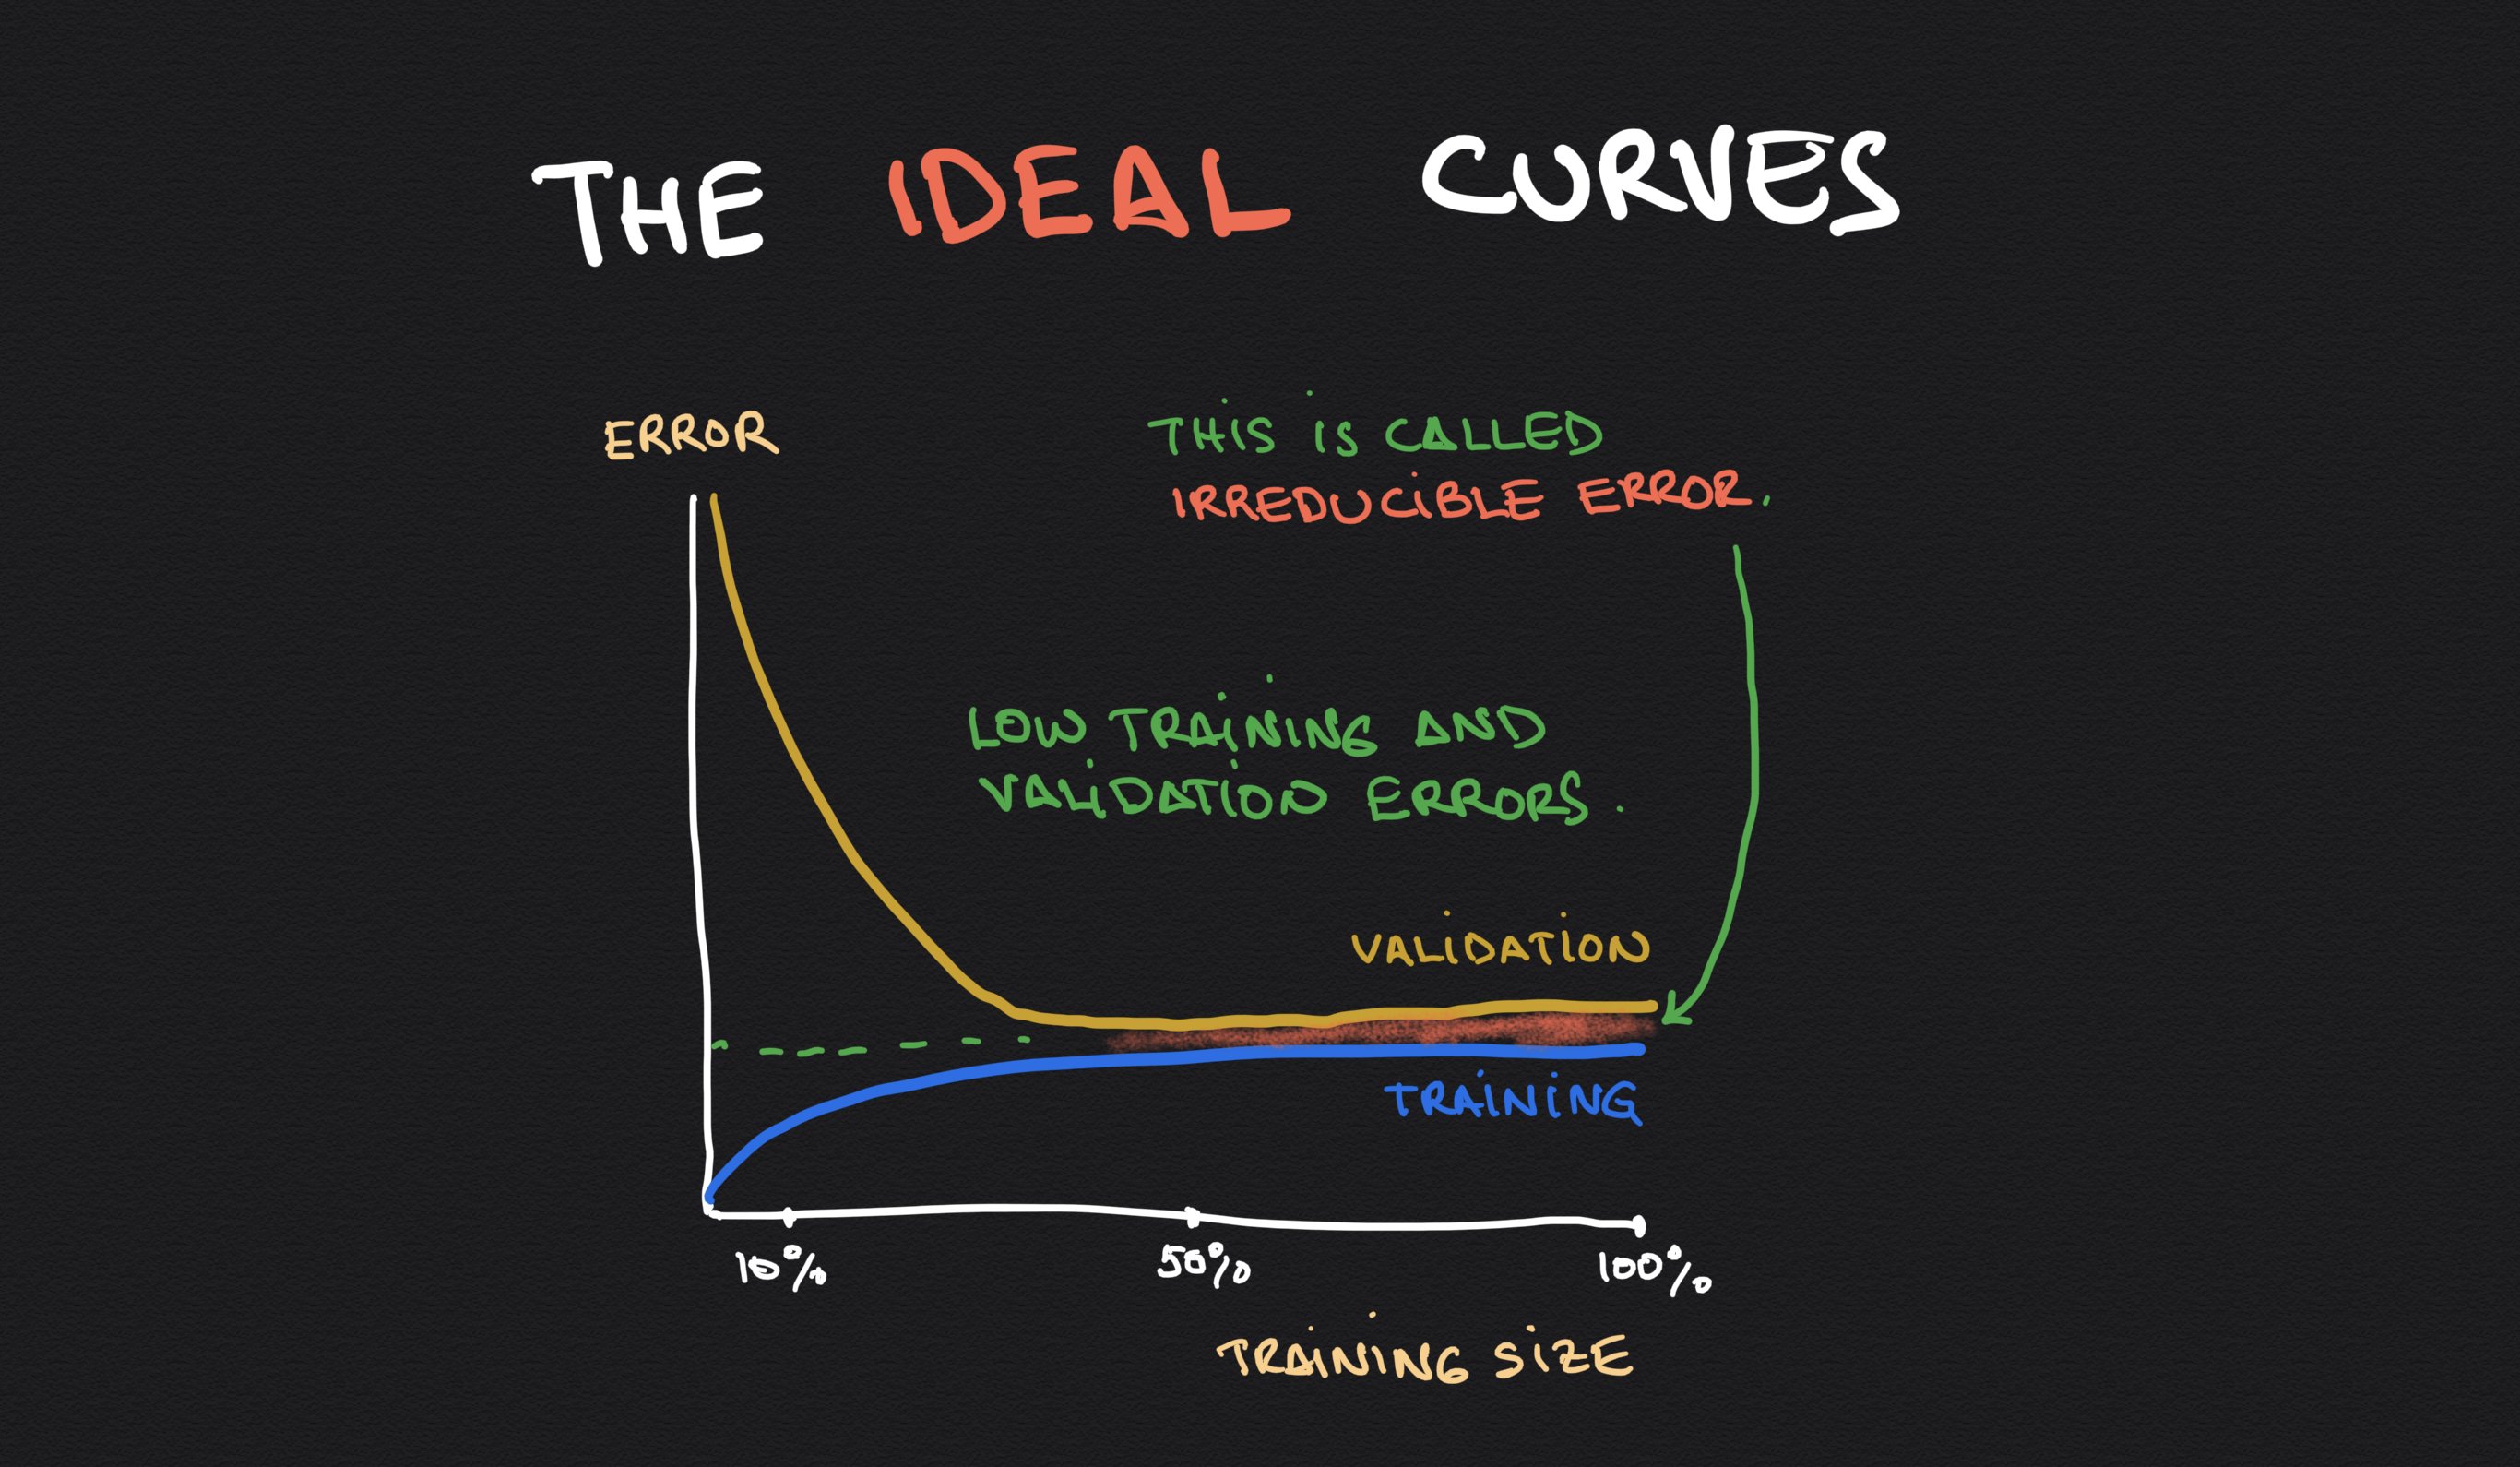 THE IDEAL CURVES
ERROR
THIS IS CALLED
IRREDUCIBLE ERROR.
LOW TRAINING AND
VALIDATION ERRORS.
VALIDATION
TRAINING
10% 50% 100%
TRAINING SIZE